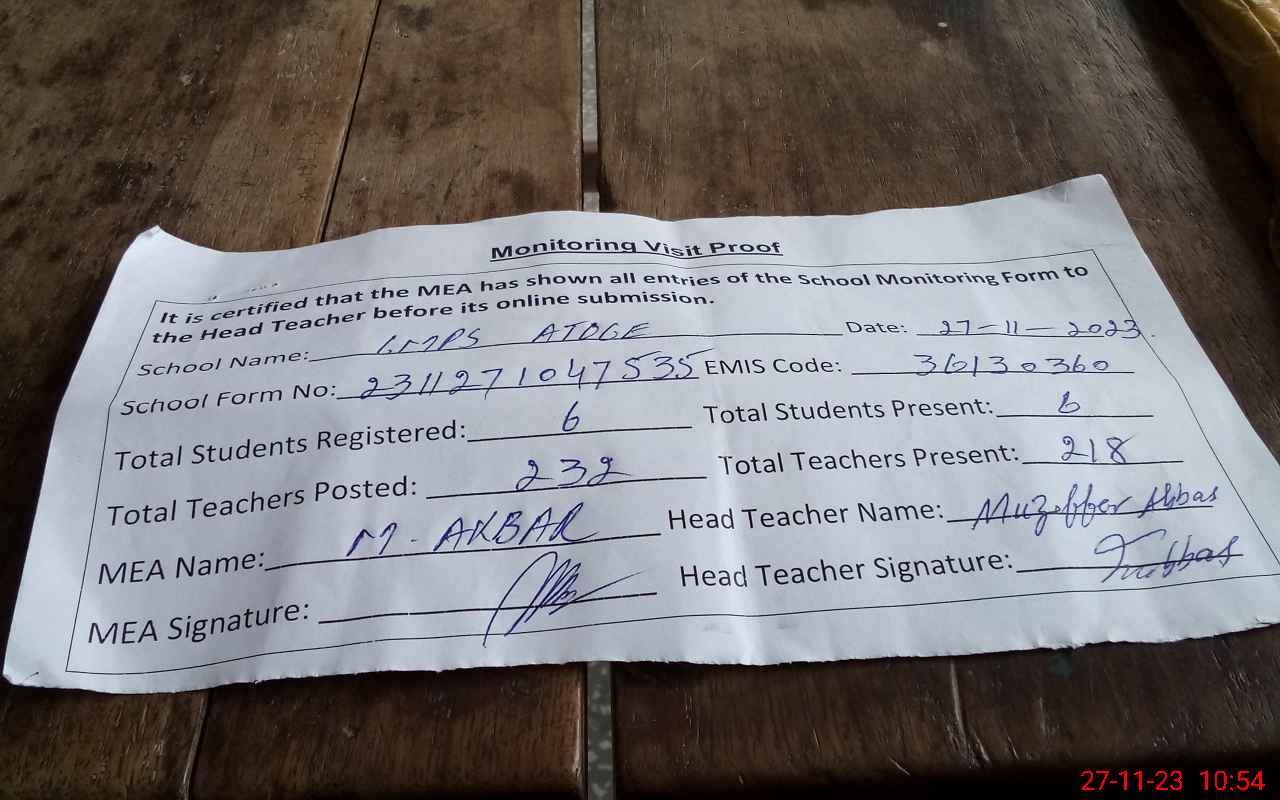 Monitoring Visit Proof
It is certified that the MEA has shown all entries of the School Monitoring Form to
the Head Teacher before its online submission.
School Name: GMPS ATOGE Date: 27-11-2023.
School Form No: 2311271047535 EMIS Code: 36130360
Total Students Registered: 6 Total Students Present: 6
Total Teachers Posted: 232 Total Teachers Present: 218
MEA Name: M. AKBAR Head Teacher Name: Muzeffer Abbas
MEA Signature: Head Teacher Signature:
27-11-23 10:54